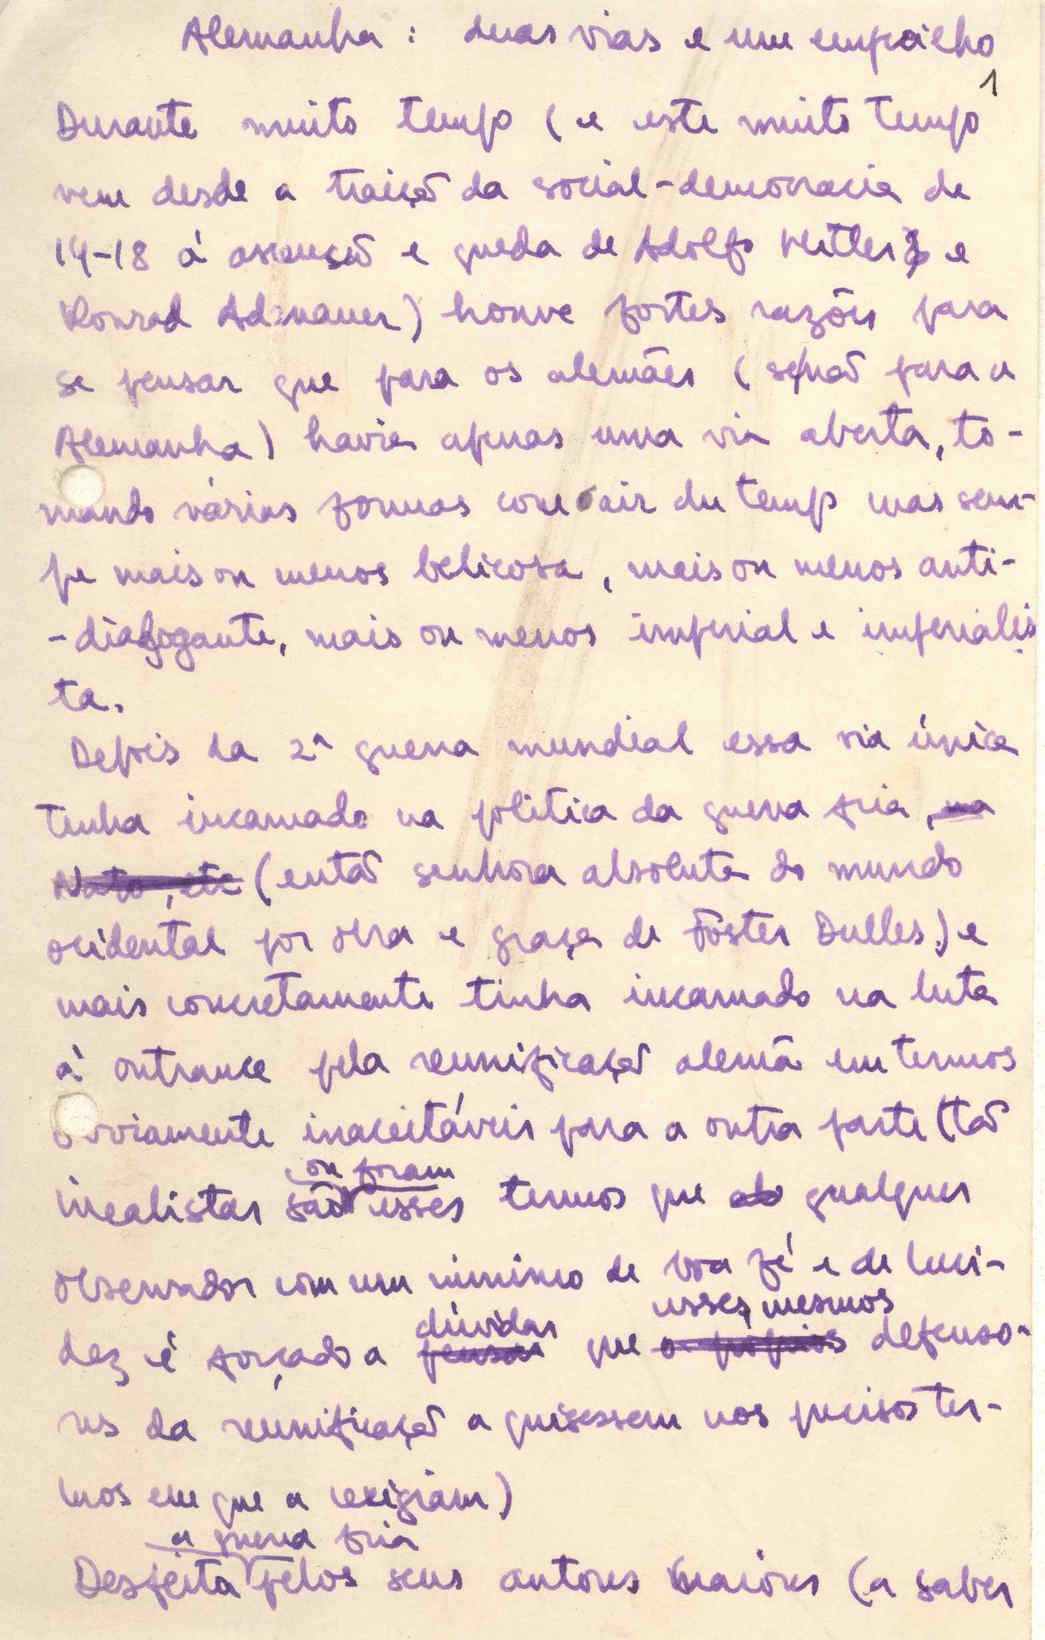 Alemanha : duas vias e um empecilho
1
Durante muito tempo ( e este muito tempo
vem desde a traição da social-democracia de
14-18 á ascensão e queda de Adolfo Hitler e
Konrad Adenauer) houve fortes razões para
se pensar que para os alemães ( senão para a
Alemanha) havia apenas uma via aberta, to-
mando várias formas com o air du temps mas sem-
pre mais ou menos belicosa, mais ou menos anti-
-dialogante, mais ou menos imperial e imperialis
ta.
Depois da 2ª guerra mundial essa via única
tinha incarnado na politica da guerra fria, na
Nato, etc (então senhora absoluta do mundo
ocidental por obra e graça de Foster Dulles) e
mais concretamente tinha incarnado na luta
à outrance pela reunificação alemã em termos
obviamente inaceitáveis para a outra parte (tão
ou foram
irrealistas são esses termos que qualquer
observador com um minimo de boa fé e de luci-
dúvidar esses mesmos
dez é forçado a pensar que os próprios defenso-
res da reunificação a quisessem nos precisos ter-
mos em que a exigiam)
a guerra fria
Desfeita pelos seus autores maiores (a saber